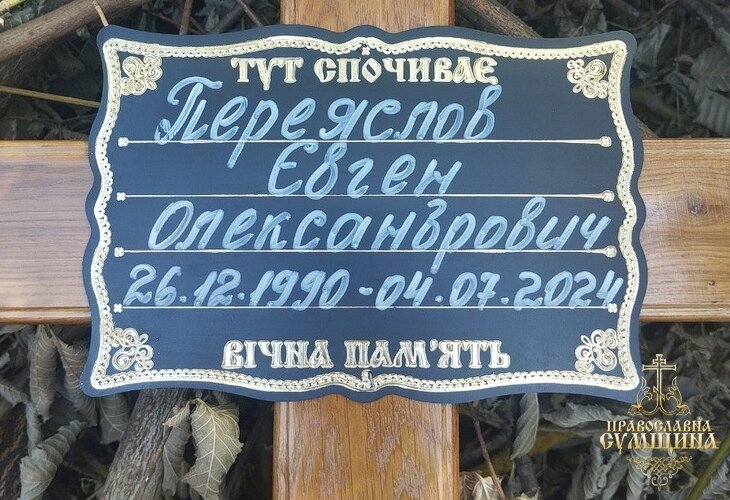 ТУТ СПОЧИВАЄ
Переяслов
Євген
Олександрович
26.12.1990-04.07.2024
ВІЧНА ПАМ'ЯТЬ
ПРАВОСЛАВНА
СУМЩИНА